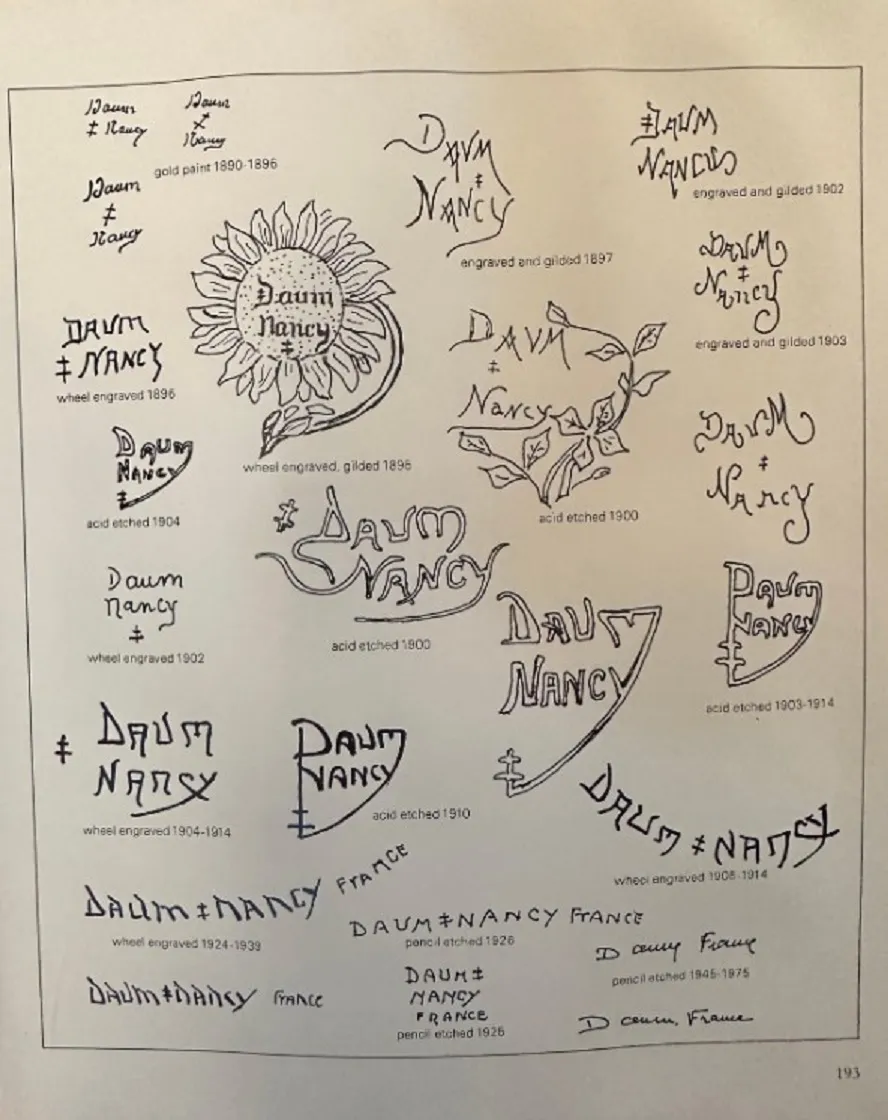 Daum
‡ Nancy
Daum
‡
Nancy
gold paint 1890-1896
Daum
‡
Nancy
DAUM
‡
NANCY
engraved and gilded 1897
‡DAUM
NANCY
engraved and gilded 1902
Daum
Nancy
‡
wheel engraved, gilded 1896
DAUM
‡
Nancy
engraved and gilded 1903
DAUM
‡ NANCY
wheel engraved 1896
DAUM
‡
Nancy
acid etched 1900
DAUM
NANCY
‡
acid etched 1904
DAUM
‡
Nancy
‡ DAUM
NANCY
acid etched 1900
Daum
nancy
‡
wheel engraved 1902
DAUM
NANCY
‡
DAUM
NANCY
‡
acid etched 1903-1914
‡ DAUM
NANCY
wheel engraved 1904-1914
DAUM
NANCY
‡
acid etched 1910
DAUM ‡ NANCY
wheel engraved 1908-1914
DAUM ‡ NANCY FRANCE
wheel engraved 1924-1939
DAUM ‡ NANCY FRANCE
pencil etched 1926
Daum France
pencil etched 1945-1975
DAUM‡NANCY FRANCE
DAUM ‡
NANCY
FRANCE
pencil etched 1926
Daum, France
193